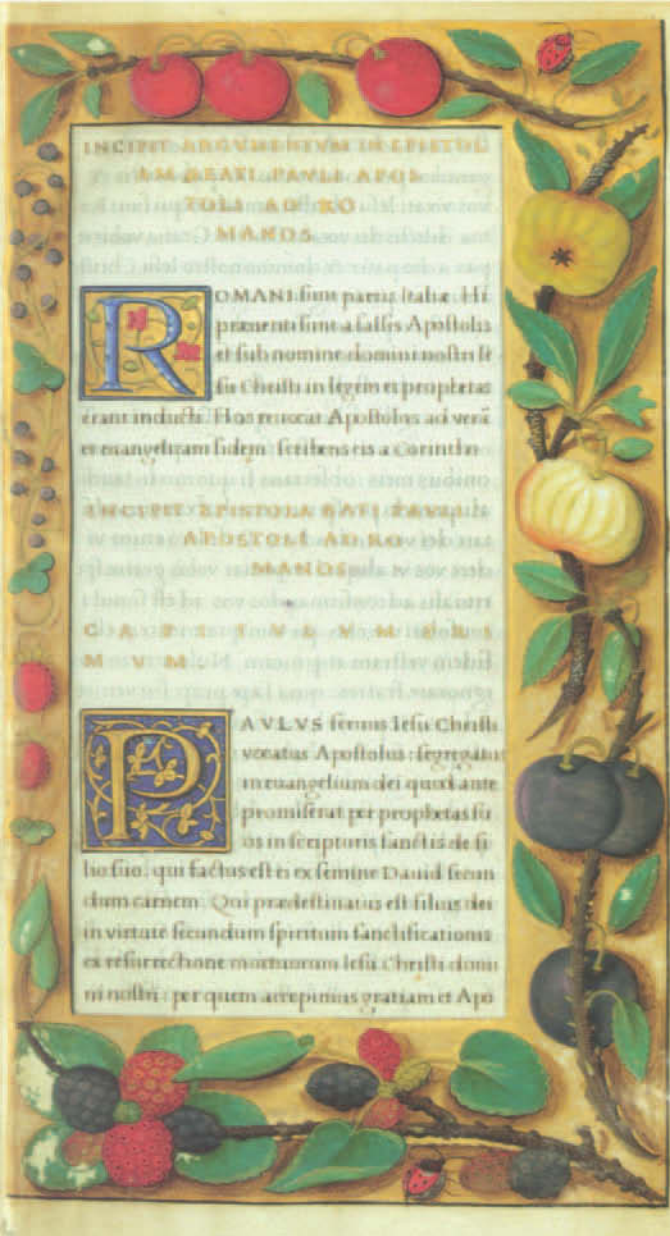 INCIPIT ARGVMENTVM IN EPISTOL
AM BEATI PAVLI APOS
TOLI AD RO
MANOS
ROMANI sunt partis Italiæ Hi
præuenti sunt a falsis Apostolis
et sub nomine domini nostri Ie
su Christi in legem et prophetas
erant inducti Hos reuocat Apostolus ad verā
et euangelicam fidem scribens eis a Corintho
INCIPIT EPISTOLA BATI PAVLI
APOSTOLI AD RO
MANOS
CAPITVLVM PRI
MVM.
PAVLVS seruus Iesu Christi
vocatus Apostolus segregatus
in euangelium dei quod ante
promiserat per prophetas su
os in scripturis sanctis de fi
lio suo, qui factus est ei ex semine Dauid secun
dum carnem Qui prædestinatus est filius dei
in virtute secundum spiritum sanctificationis
ex resurrectione mortuorum Iesu Christi domi
ni nostri per quem accepimus gratiam et Apo